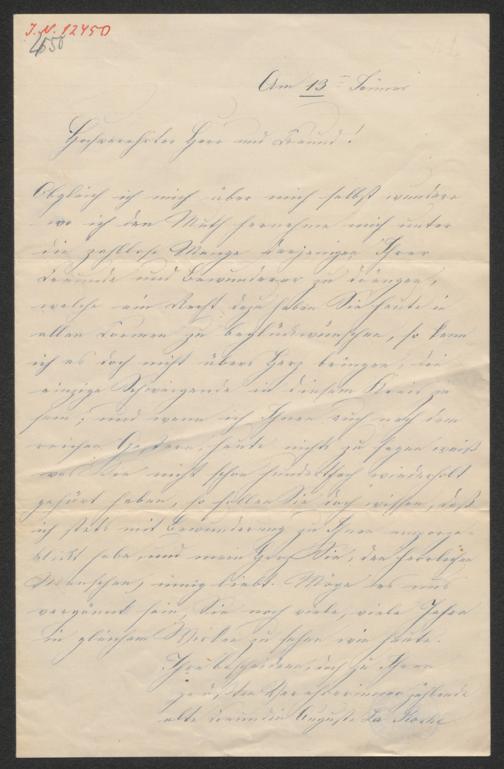 I.N. 12450
Am 13ᵗ Jänner
Hochverehrter Herr und Freund!
Obgleich ich mich über mich selbst wundere
wo ich den Muth hernehme mich unter
die zahllose Menge derjenigen Ihrer
Freunde und Bewunderer zu drängen,
welche ein Recht dazu haben Sie heute in
allen Formen zu beglückwünschen, so kann
ich es doch nicht übers Herz bringen, die
einzige Schweigende in diesem Kreis zu
sein; und wenn ich Ihnen auch nach dem
reichen Gestern, heute nichts zu sagen weiß
was Sie nicht schon hundertfach wiederholt
gehört haben, so sollen Sie doch wissen, daß
ich stets mit Bewunderung zu Ihnen emporge-
blickt habe, und mein Herz Sie, den herrlichen
Menschen, innig liebt. Möge es uns
vergönnt sein Sie noch viele, viele Jahre
in gleichem Wirken zu sehen wie heute.
Ihre bescheidene, sich zu Ihren
Verehrerinnen zählende
alte Freundin Auguste La Roche